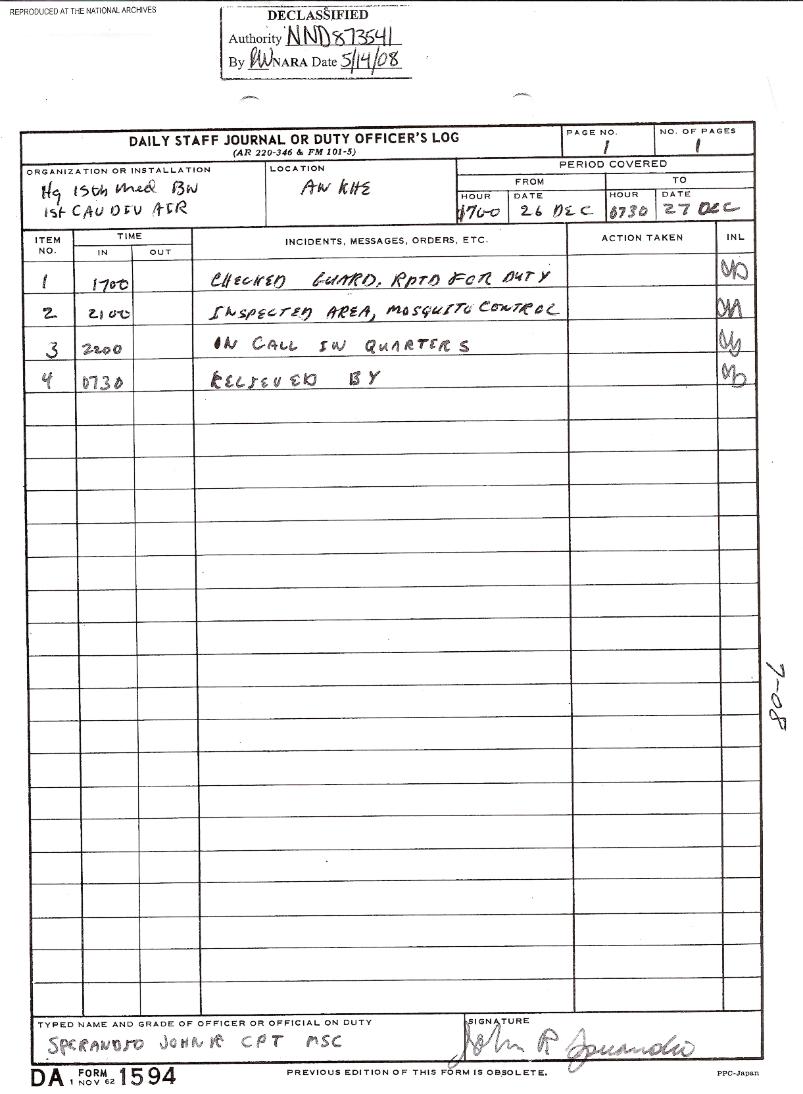 REPRODUCED AT THE NATIONAL ARCHIVES
DECLASSIFIED
Authority NND873541
By NARA Date 5/14/08
DAILY STAFF JOURNAL OR DUTY OFFICER'S LOG
(AR 220-346 & FM 101-5)
PAGE NO.
1
NO. OF PAGES
1
ORGANIZATION OR INSTALLATION
Hq 15th Med BN
1st CAV DIV AIR
LOCATION
AN KHE
PERIOD COVERED
FROM
TO
HOUR
1700
DATE
26 DEC
HOUR
0730
DATE
27 DEC
ITEM NO.
TIME
IN
OUT
INCIDENTS, MESSAGES, ORDERS, ETC.
ACTION TAKEN
INL
1 1700 CHECKED GUARD, RPTD FOR DUTY
2 2100 INSPECTED AREA, MOSQUITO CONTROL
3 2200 ON CALL IN QUARTERS
4 0730 RELIEVED BY
7-08
TYPED NAME AND GRADE OF OFFICER OR OFFICIAL ON DUTY
SPERANDIO JOHN R CPT MSC
SIGNATURE
John R Sperandio
DA FORM 1 NOV 62 1594
PREVIOUS EDITION OF THIS FORM IS OBSOLETE.
PPC-Japan